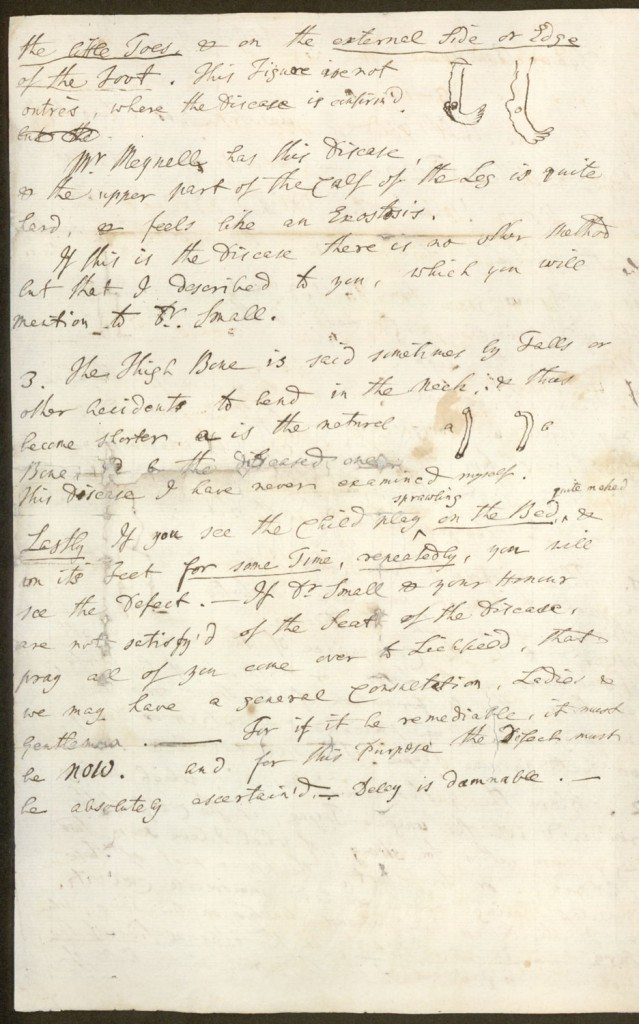 the little Toes, & on the external Side or Edge
of the Foot. This Figure is not
outrès, where the Disease is confirm'd.
but the
Mr Meynell has this Disease,
& the upper part of the Calf of the Leg is quite
hard, & feels like an Exostosis.
If this is the Disease there is no other Method
but that I described to you, which you will
mention to Dr. Small.
3. The Thigh Bone is said sometimes by Falls or
other Accidents to bend in the Neck, & thus
become shorter. a is the natural a b
Bone, & b the diseased one.
This Disease I have never examined myself.
sprawling quite naked
Lastly If you see the Child play on the Bed, ^ &
on its Feet for some Time, repeatedly, you will
see the Defect. — If Dr Small & your Honour
are not satisfy'd of the Seat of the Disease,
pray all of you come over to Lichfield, that
we may have a general Consultation, Ladies &
Gentlemen. — For if it be remediable, it must
be NOW. and for this Purpose the Defect must
be absolutely ascertain'd — Delay is damnable. —